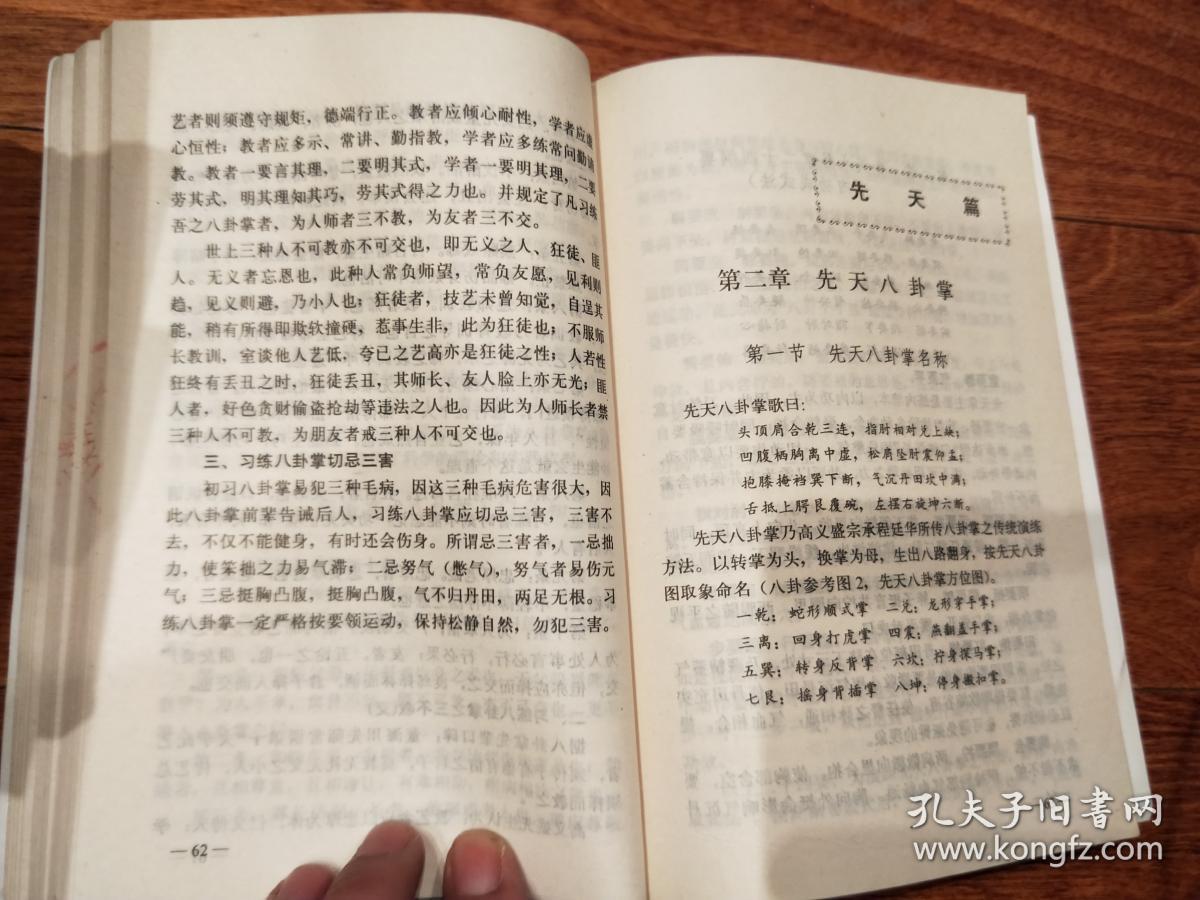 艺者则须遵守规矩，德端行正。教者应倾心耐性，学者应虚
心恒性；教者应多示、常讲、勤指教，学者应多练常问勤请
教。教者一要言其理，二要明其式，学者一要明其理，二要
劳其式，明其理知其巧，劳其式得之力也。并规定了凡习练
吾之八卦掌者，为人师者三不教，为友者三不交。
世上三种人不可教亦不可交也，即无义之人、狂徒、匪
人。无义者忘恩也，此种人常负师望，常负友愿，见利则
趋，见义则避，乃小人也；狂徒者，技艺未曾知觉，自逞其
能，稍有所得即欺软撞硬，惹事生非，此为狂徒也；不服师
长教训，室谈他人艺低，夸已之艺高亦是狂徒之性；人若性
狂终有丢丑之时，狂徒丢丑，其师长、友人脸上亦无光；匪
人者，好色贪财偷盗抢劫等违法之人也。因此为人师长者禁
三种人不可教，为朋友者戒三种人不可交也。
三、习练八卦掌切忌三害
初习八卦掌易犯三种毛病，因这三种毛病危害很大，因
此八卦掌前辈告诫后人，习练八卦掌应切忌三害，三害不
去，不仅不能健身，有时还会伤身。所谓忌三害者，一忌拙
力，使笨拙之力易气滞；二忌努气（憋气），努气者易伤元
气；三忌挺胸凸腹，挺胸凸腹，气不归丹田，两足无根。习
练八卦掌一定严格按要领运动，保持松静自然，勿犯三害。
—62—
先天篇
第二章 先天八卦掌
第一节 先天八卦掌名称
先天八卦掌歌曰：
头顶肩合乾三连，指肘相对兑上缺；
凹腹栖胸离中虚，松肩坠肘震仰盂；
抱膝掩裆巽下断，气沉丹田坎中满；
舌抵上腭艮覆碗，左摆右旋坤六断。
先天八卦掌乃高义盛宗承程廷华所传八卦掌之传统演练
方法。以转掌为头，换掌为母，生出八路翻身，按先天八卦
图取象命名（八卦参考图2，先天八卦掌方位图）。
一乾；蛇形顺式掌 二兑；龙形穿手掌；
三离；回身打虎掌 四震；燕翻盖手掌；
五巽；转身反背掌 六坎；拧身探马掌；
七艮；摇身背插掌 八坤；停身搬扣掌。
孔夫子旧书网
www.kongfz.com